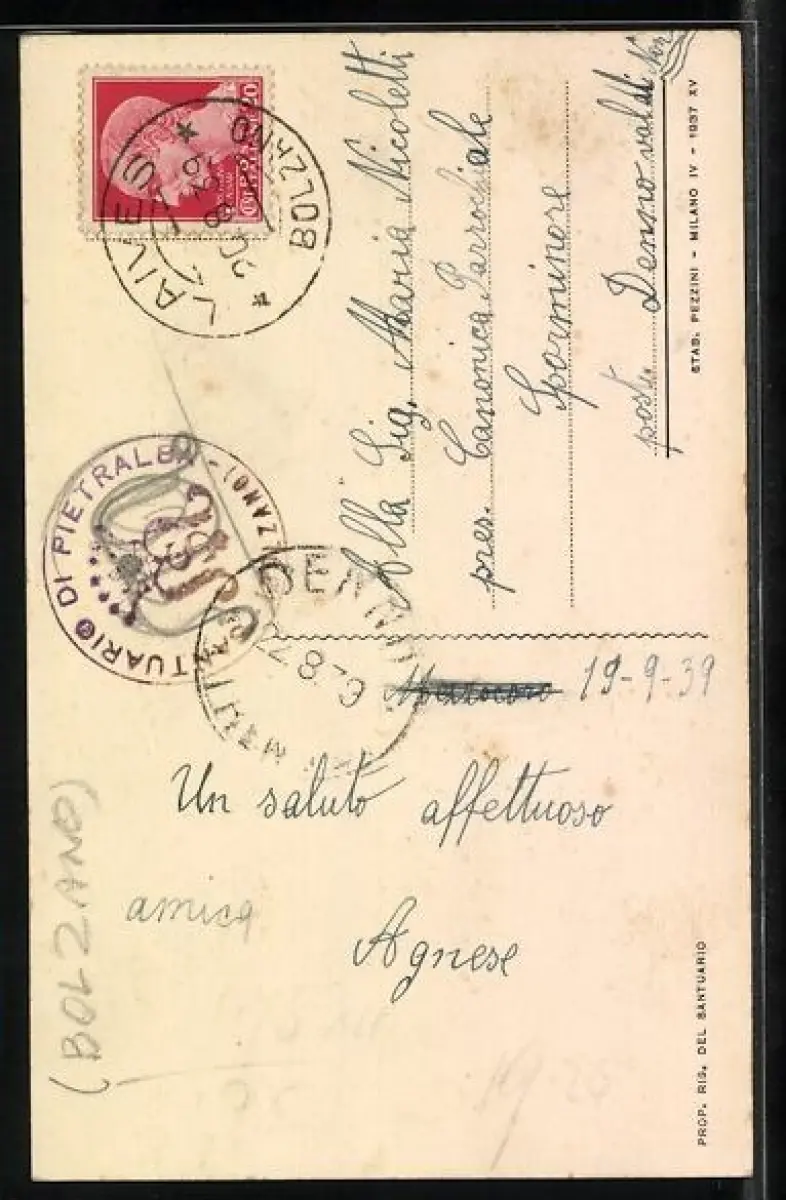 LAIVES
BOLZANO
SANTUARIO DI PIETRALBA - (
ZANO)
Alla Sig. Maria Nicoletti
pres. Canonica Parrochiale
Sporminore
posta Denno val di Non
STAB. PEZZINI - MILANO IV - 1937 XV
19-9-39
Un saluto affettuoso
amica
Agnese
(BOLZANO)
PROP. RIS. DEL SANTUARIO